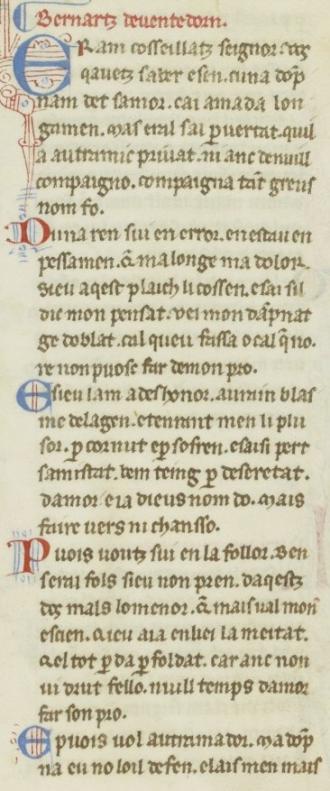 Bernartz deuentedorn.
ERam cosseillatz seignor. uos
qauetz saber e sen. cuna dop
nam det samor. cai amada lon
gamen. mas eral sai p uertat. quil
a autramic priuat. ni anc de nuill
compaigno. compaigna tāt greus
nom fo.
Duna ren sui en error. en estau en
pessamen. & ma longe ma dolor.
sieu aqest plaich li cossen. e sai sil
dic mon pensat. vei mon dāpnat
ge doblat. cal queu fassa o cal q̄ no.
re non puosc far de mon pro.
Esieu lam a deshonor. aurain blas
me de la gen. e tenrant men li plu
sor. p cornut e p sofren. e saisi pert
samistat. bem teing p deseretat.
damor. e ia dieus nom do. mais
faire uers ni chansso.
Puois uoutz sui en la follor. Ben
serai fols sieu non pren. daqestz
dos mals lo menor. & mais ual mon
escien. qieu aia en liei la meitat.
qel tot pda p foldat. car anc non
ui drut fello. nuill temps damor
far son pro.
Epuois uol autramador. ma dop
na eu no loil defen. e lais men mais